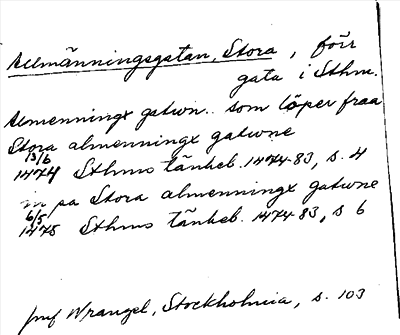 Allmänningsgatan, Stora, förr
gata i Sthm.
Almenningx gatwn.. som löper fraa
Stora almenningx gatwne
13/6
1474 Sthms tänkeb. 1474-83, s. 4
pa Stora almenningx gatwne
6/5
1475 Sthms tänkeb. 1474-83, s 6
jmf Wrangel, Stockholmia, s. 103